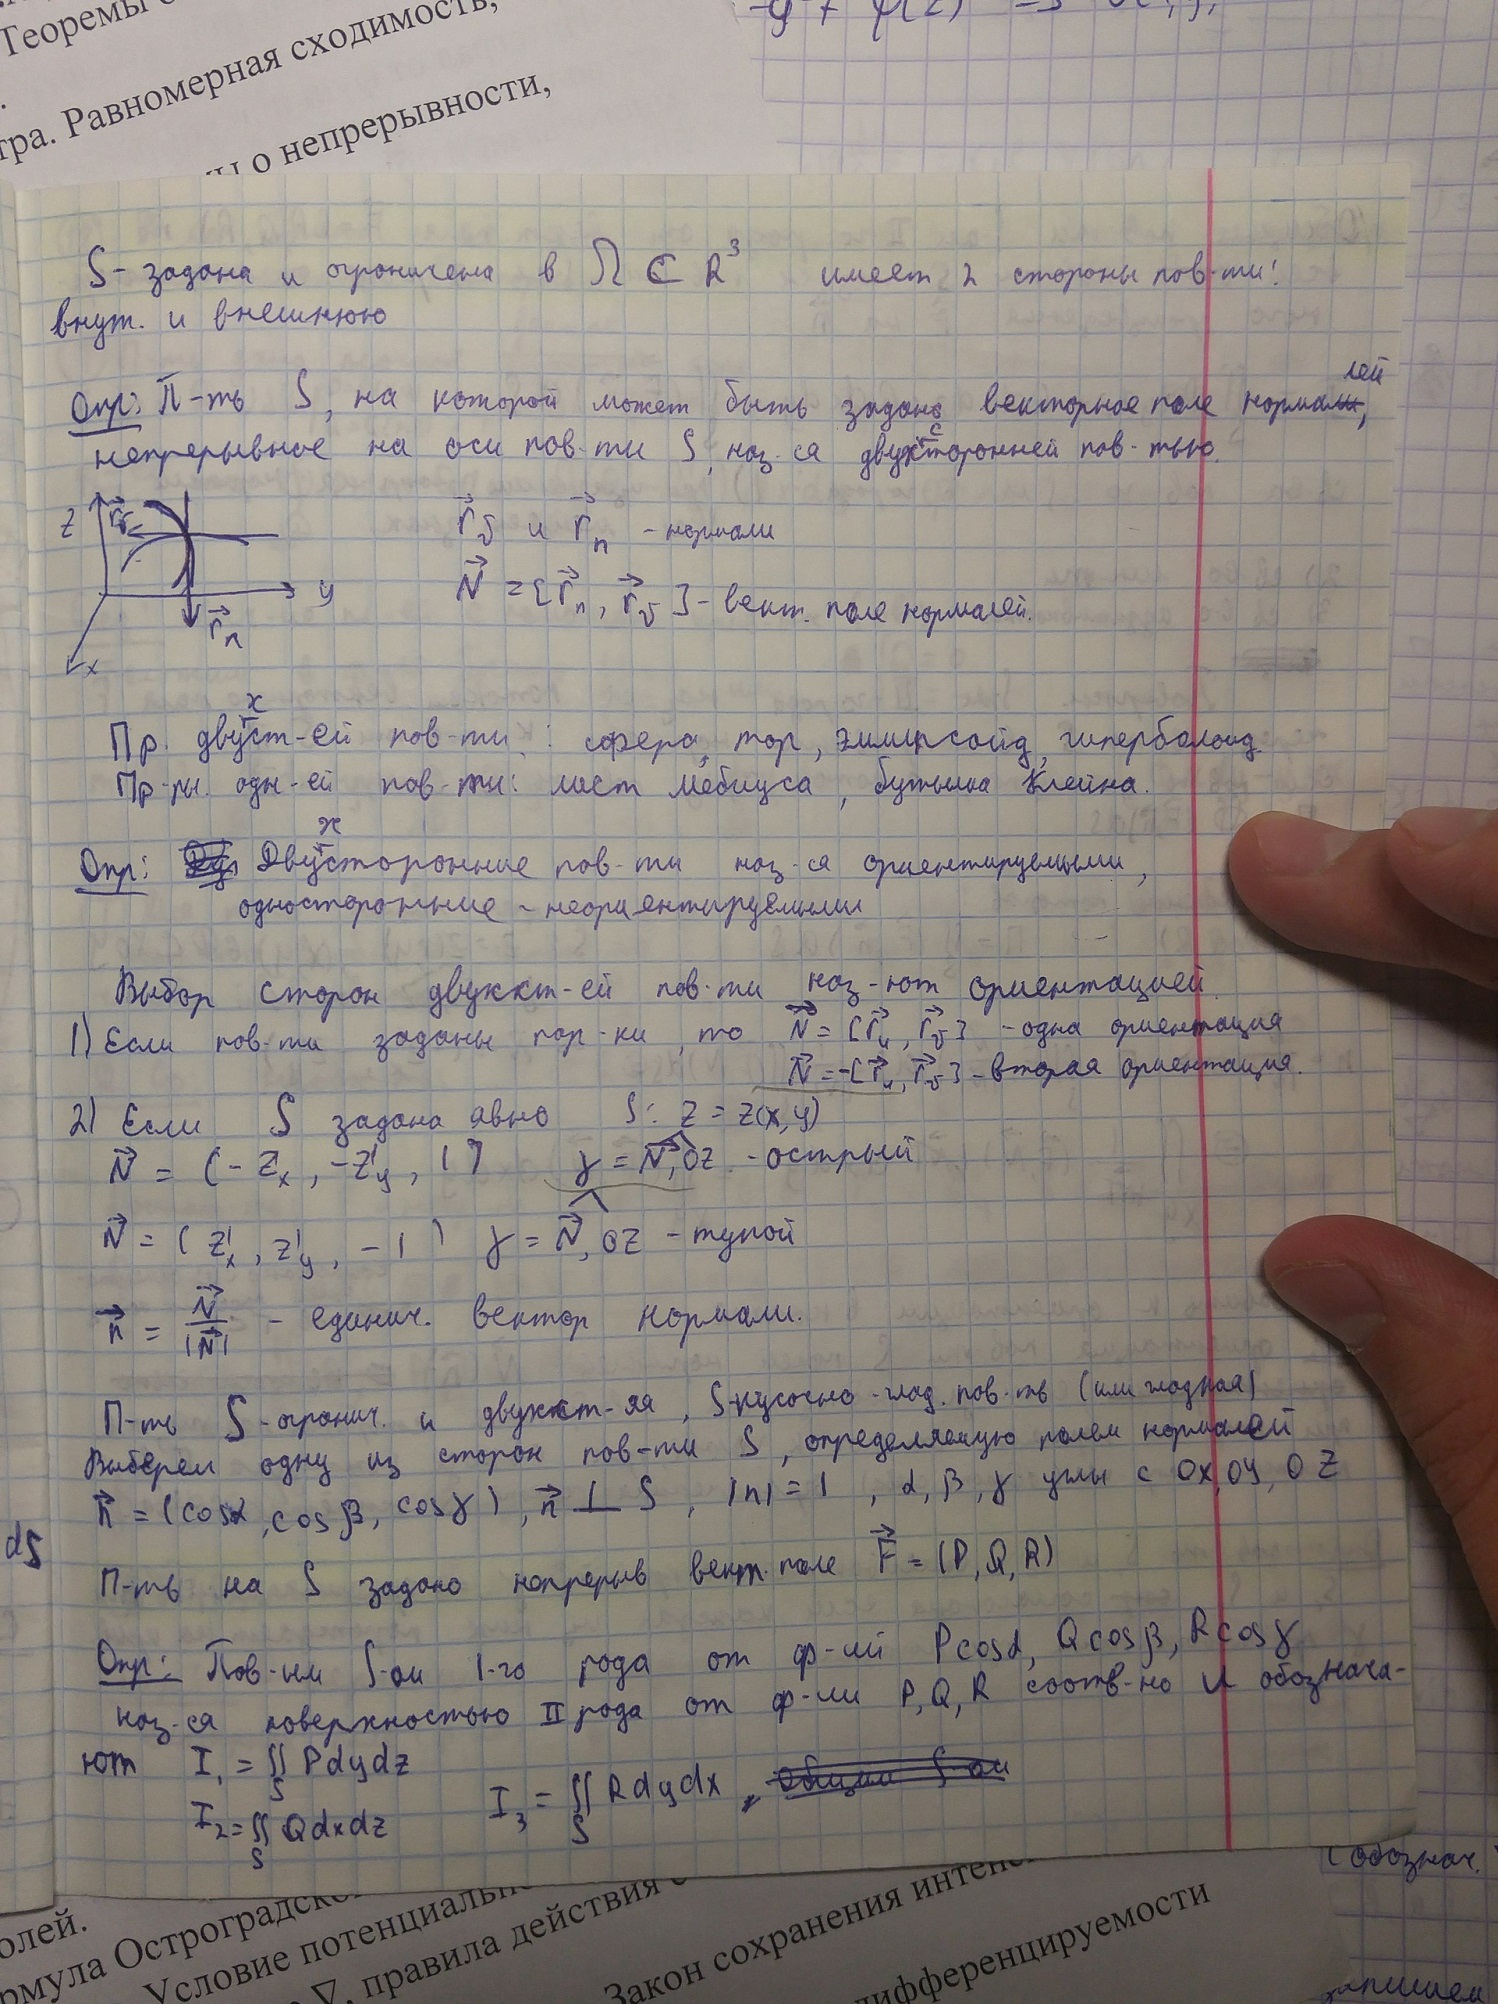 Теоремы
тра. Равномерная сходимость,
о непрерывности,
S - задана и ограничена в Ω ⊂ R³ имеет 2 стороны пов-ти:
внут. и внешнюю
Опр: П-ть S, на которой может быть задано векторное поле нормалей,
непрерывное на оси пов-ти S, наз-ся двухсторонней пов-тью.
Z
r⃗ᵥ
y
r⃗ₙ
x
r⃗ᵥ и r⃗ₙ - нормали
N⃗ = [r⃗ₙ, r⃗ᵥ] - вект. поле нормалей.
Пр. двухст-ей пов-ти: сфера, тор, эллипсоид, гиперболоид
Пр-ры. одн-ей пов-ти: лист Мёбиуса, бутылка Клейна.
Опр: Двухсторонние пов-ти наз-ся ориентируемыми,
односторонние - неориентируемыми
Выбор сторон двухст-ей пов-ти наз-ют ориентацией.
1) Если пов-ти заданы пар-ки, то N⃗ = [r⃗ᵤ, r⃗ᵥ] - одна ориентация
N⃗ = -[r⃗ᵤ, r⃗ᵥ] - вторая ориентация.
2) Если S задана явно S: z = z(x,y)
N⃗ = (-z'ₓ, -z'y, 1) γ = N⃗,OZ - острый
N⃗ = (z'ₓ, z'y, -1) γ = N⃗, OZ - тупой
n⃗ = N⃗/|N⃗| - единич. вектор нормали.
П-ть S - огранич. и двухст-яя, S-кусочно-глад. пов-ть (или гладкая)
Выберем одну из сторон пов-ти S, определяемую полем нормалей
n⃗ = (cosα, cosβ, cosγ), n⃗ ⊥ S, |n| = 1, α, β, γ углы с OX, OY, OZ
dS
П-ть на S задано непрерыв вект. поле F⃗ = (P, Q, R)
Опр: Пов-ым ∫-ом 1-го рода от ф-ий Pcosα, Qcosβ, Rcosγ
наз-ся поверхностью II рода от ф-ии P, Q, R соотв-но и обознача-
ют I₁ = ∬ₛ Pdydz
I₂ = ∬ₛ Qdxdz I₃ = ∬ₛ Rdydx,
(обознач.
олей.
рмула Остроградског
Условие потенциальн
∇, правила действия с
Закон сохранения интенс
дифференцируемости